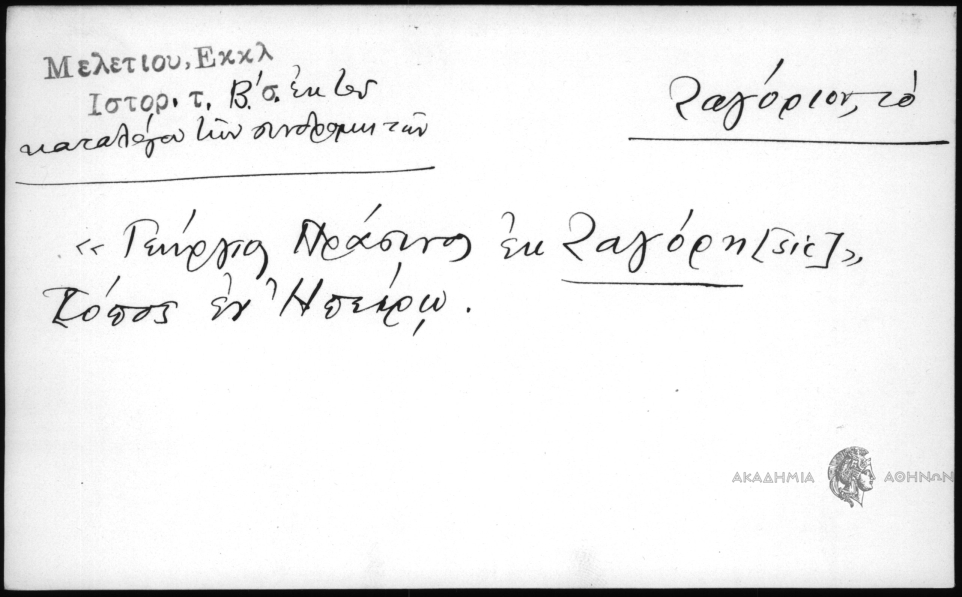 Μελετίου, Εκκλ
Ιστορ. τ. Β.' σ. ἐκ τοῦ
καταλόγου τῶν συνδρομητῶν
Ζαγόριον, τὸ
« Γεώργιος Πράσινος ἐκ Ζαγόρη [sic] »,
Τόπος ἐν Ἠπείρῳ.
ΑΚΑΔΗΜΙΑ ΑΘΗΝΩΝ